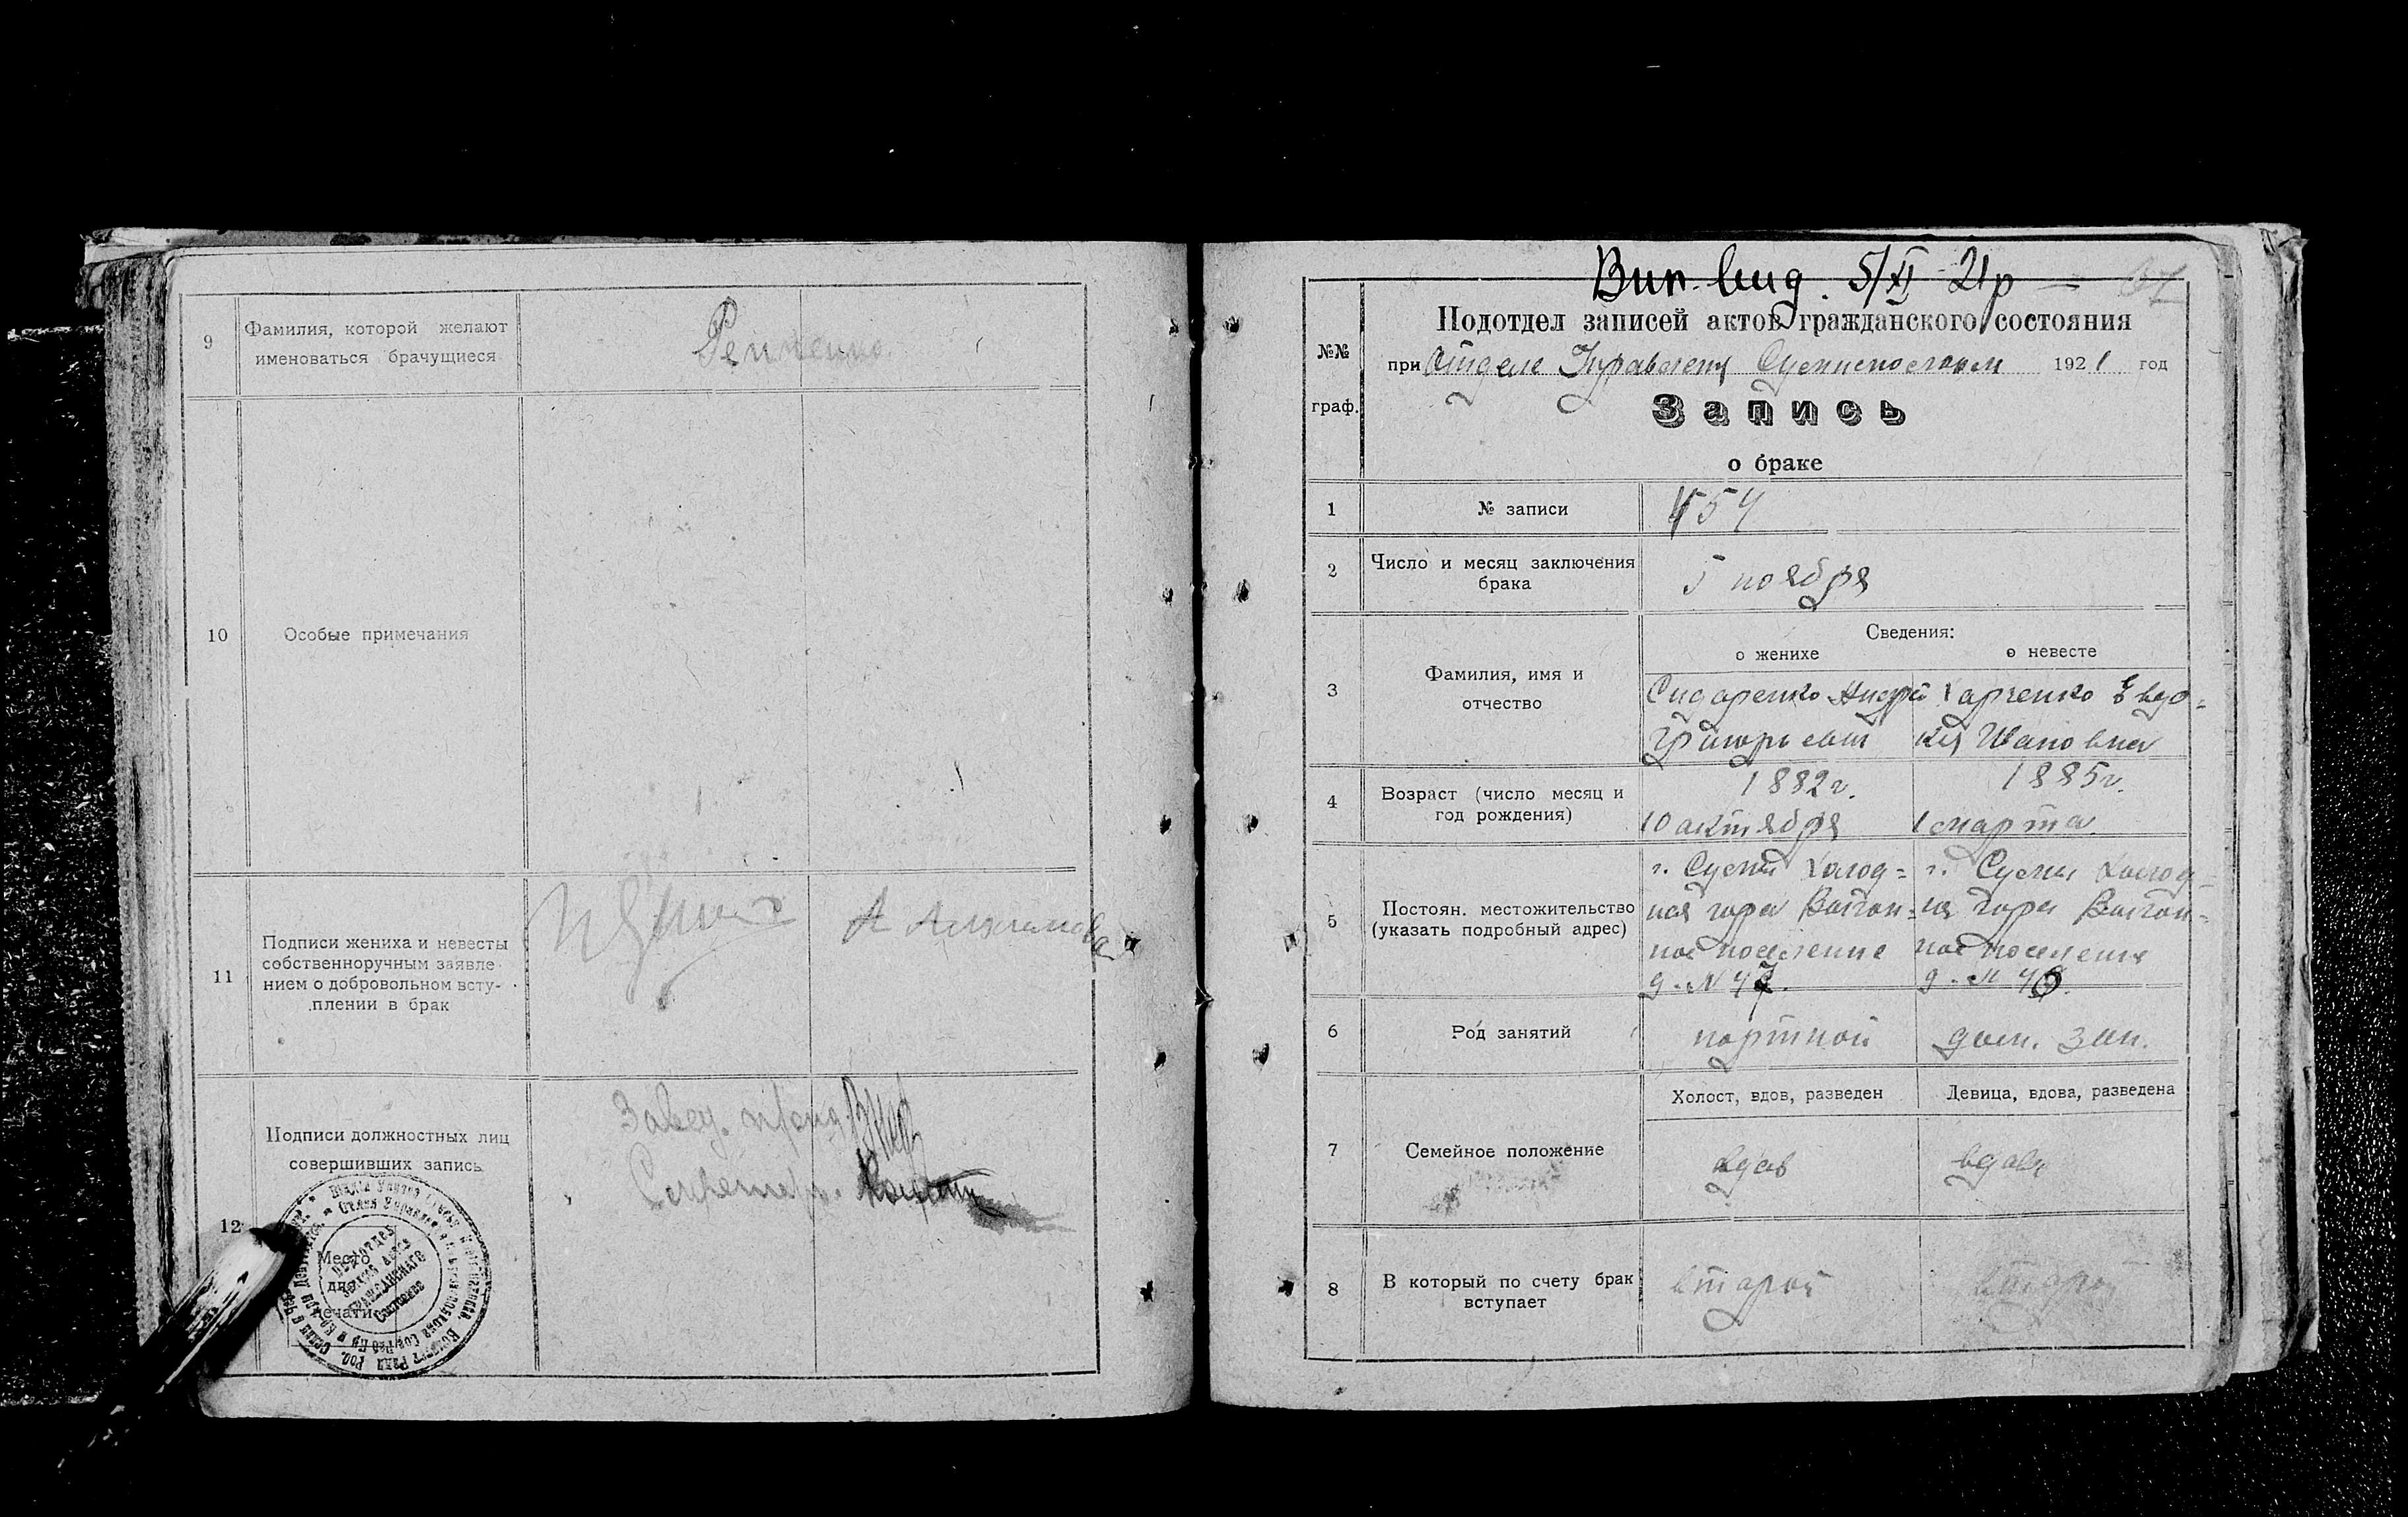 9
Фамилия, которой желают
именоваться брачущиеся
10
Особые примечания
11
Подписи жениха и невесты
собственноручным заявле-
нием о добровольном всту-
плении в брак
Завед.
Секретарь.
12
Подписи должностных лиц
совершивших запись
Место
для
печати
5/XI 21р
№№
граф.
Подотдел записей актов гражданского состояния
при Отделе Управления 1921 год
Запись
о браке
1
№ записи
454
2
Число и месяц заключения
брака
5 ноября
3
Фамилия, имя и
отчество
Сведения:
о женихе
о невесте
Сидаренко Андрей
Григорьевич
Харченко Евдо=
кия Ивановна
4
Возраст (число месяц и
год рождения)
1882 г.
10 актября
1885 г.
1 марта
5
Постоян. местожительство
(указать подробный адрес)
г. Сумы Холод=
ная гора Вагон=
ное поселение
д. N 47.
г. Сумы Холод=
ая гора Вагон=
ное поселение
д. N 46.
6
Род занятий
портной
дом. зан.
7
Семейное положение
Холост, вдов, разведен
Девица, вдова, разведена
вдов
вдова
8
В который по счету брак
вступает
втарой
втарой